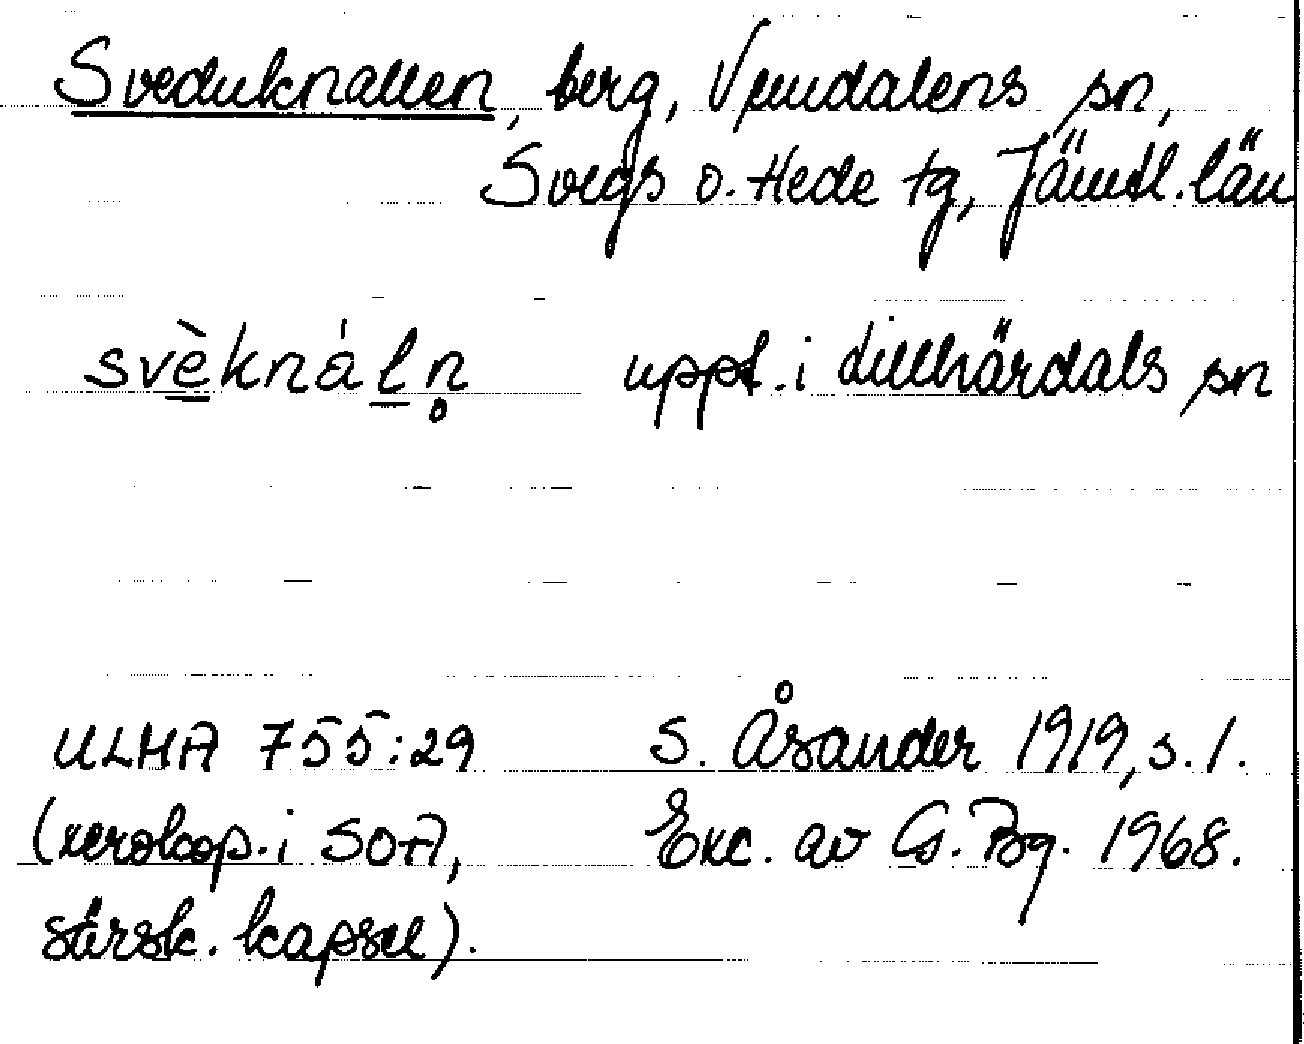 Sveduknallen, berg, Vemdalens sn,
Svegs o. Hede tg, Jämtl. län
svè̳knál̲n̥ uppt. i Lillhärdals sn
ULMA 755:29 S. Åsander 1919, s. 1.
(xerokop. i SOFI, Exc. av G. Bg. 1968.
särsk. kapsel).